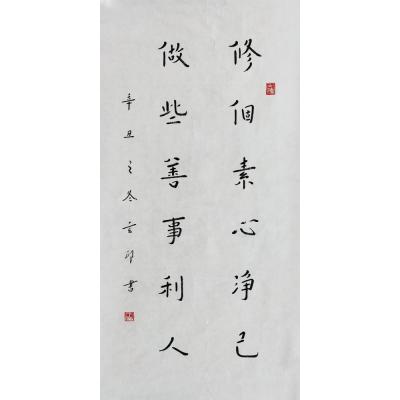 修個素心淨己
做些善事利人
辛丑之冬雲祥書